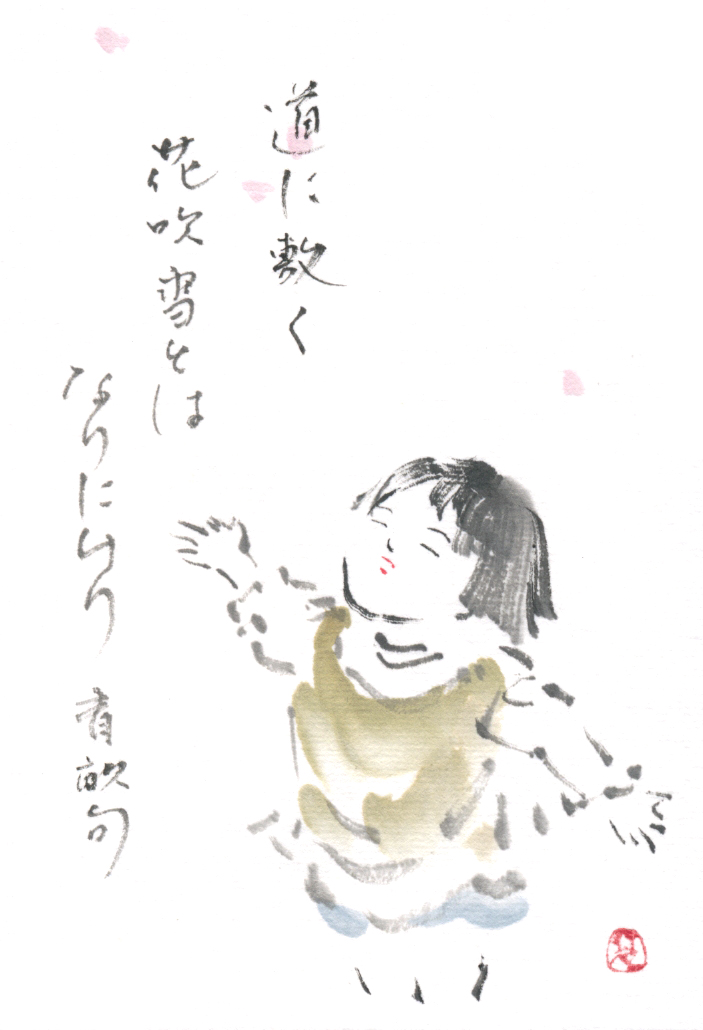 道に敷く
花吹雪とは
なりにけり 有畝句